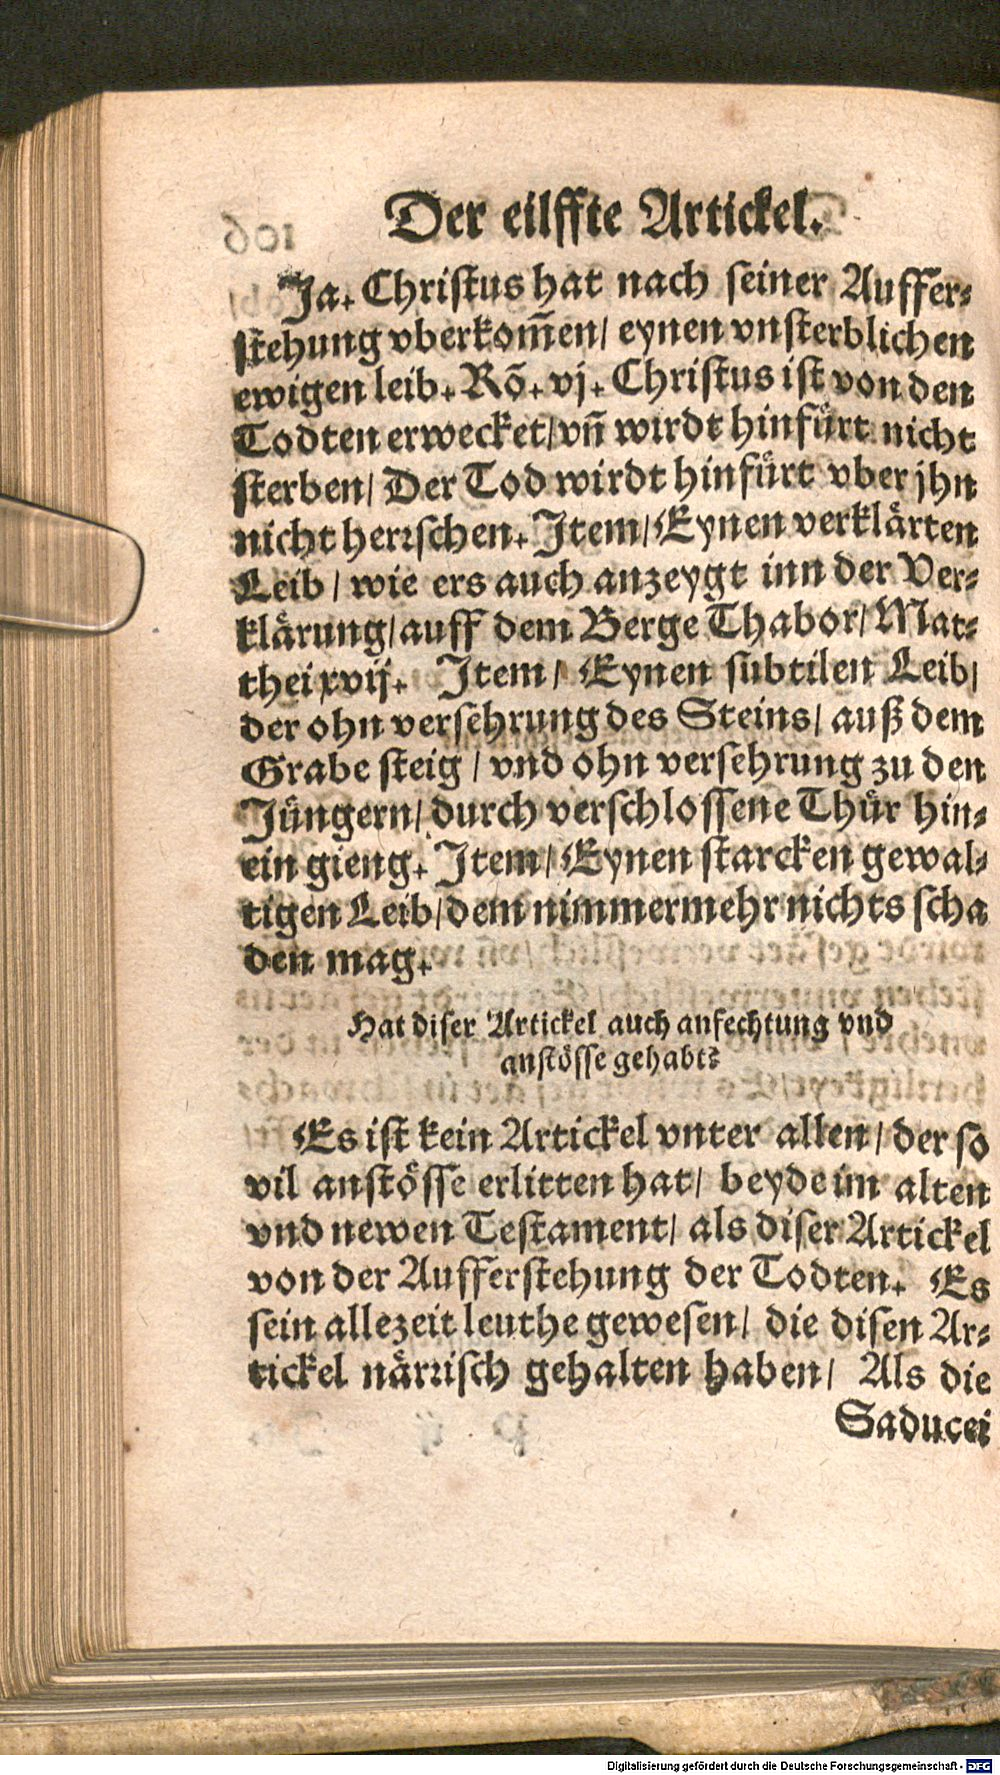 Der eilffte Artickel.
Ja. Christus hat nach seiner Auffer-
stehung vberkom̃en/ eynen vnsterblichen
ewigen leib. Rõ. vj. Christus ist von den
Todten erwecket/ vñ wirdt hinfürt nicht
sterben/ Der Tod wirdt hinfürt vber jhn
nicht herrschen. Item/ Eynen verklärten
Leib/ wie ers auch anzeygt inn der Ver-
klärung/ auff dem Berge Thabor/ Mat-
thei xvij. Item/ Eynen subtilen Leib/
der ohn versehrung des Steins/ auß dem
Grabe steig/ vnd ohn versehrung zu den
Jüngern/ durch verschlossene Thür hin-
ein gieng. Item/ Eynen starcken gewal-
tigen Leib/ dem nimmermehr nichts scha
den mag.
Hat diser Artickel auch anfechtung vnd
anstösse gehabt?
Es ist kein Artickel vnter allen/ der so
vil anstösse erlitten hat/ beyde im alten
vnd newen Testament/ als diser Artickel
von der Aufferstehung der Todten. Es
sein allezeit leuthe gewesen/ die disen Ar-
tickel närrisch gehalten haben/ Als die
Saducei
Digitalisierung gefördert durch die Deutsche Forschungsgemeinschaft - DFG